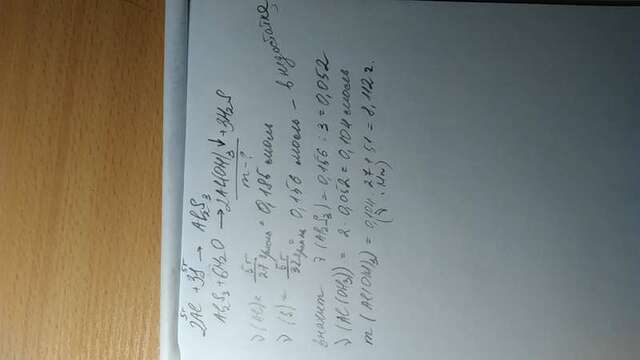 5г 5г
2Al + 3S → Al₂S₃
Al₂S₃ + 6H₂O → 2Al(OH)₃↓ + 3H₂S
m - ?
ν(Al) = 5г / 27 г/моль = 0,185 моль
ν(S) = 5г / 32 г/моль = 0,156 моль – в недостатке
значит ν(Al₂S₃) = 0,156 : 3 = 0,052
ν(Al(OH)₃) = 2 · 0,052 = 0,104 моль
m(Al(OH)₃) = 0,104 · 27+51 = 8,112 г.
(ν · Mr)